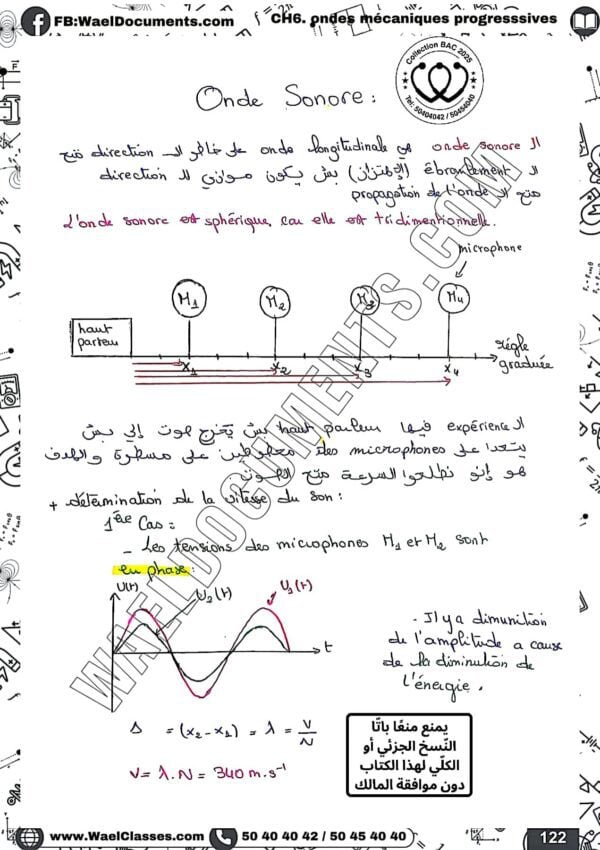 FB:WaelDocuments.com
CH6. ondes mécaniques progresssives
Collection BAC 2025
Tel: 50404042 / 50454040
Onde Sonore :
الـ onde sonore هي onde longitudinale على خاطر الـ direction متع
الـ ébranlement (الإهتزاز) بش يكون موازي للـ direction
متع الـ propagation de l'onde
L'onde sonore est sphérique, car elle est tridimentionnelle.
microphone
M1 M2 M3 M4
haut
parleur
x1 x2 x3 x4
règle
graduée
الـ expérience فيها haut parleur بش يخرج صوت إلي بش
يتعدا على des microphones محطوطين على مسطرة والهدف
هو إنو نطلعوا السرعة متع الصوت
+ détermination de la vitesse du son :
1ère Cas :
- Les tensions des microphones M1 et M2 sont
en phase :
U(t)
U2(t)
U1(t)
t
- Il y a dimunition
de l'amplitude a cause
de la diminution de
l'énergie.
Δ = (x2 - x1) = λ = V/N
V = λ.N = 340 m.s-1
يمنع منعًا باتًا
النّسخ الجزئي أو
الكلّي لهذا الكتاب
دون موافقة المالك
WAELDOCUMENTS.COM
www.WaelClasses.com
50 40 40 42 / 50 45 40 40
122